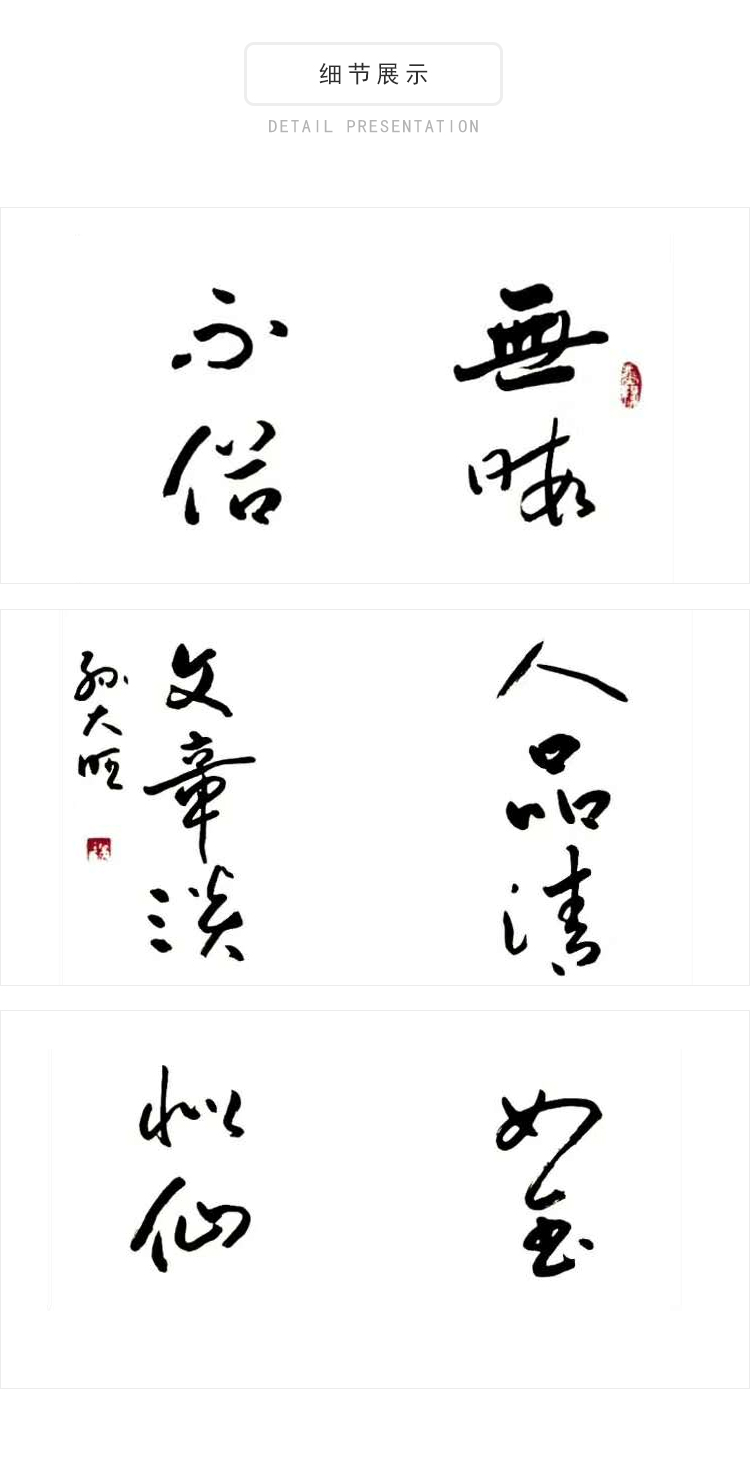 细节展示
DETAIL PRESENTATION
無暇
不俗
人品清
文章淡
孙大
如玉
似仙